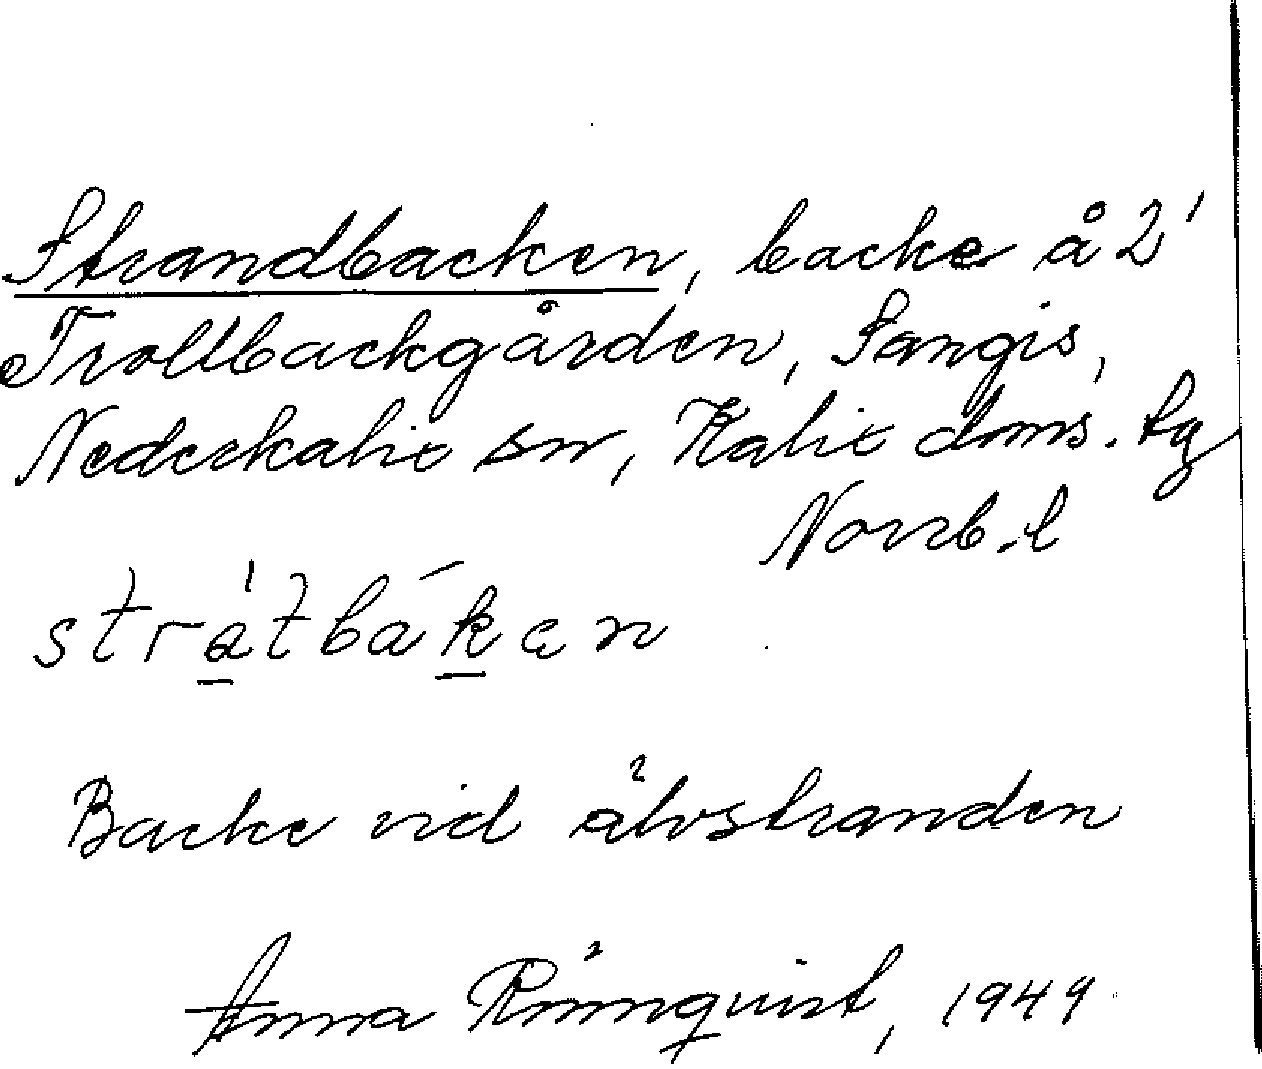 Strandbacken, backe å 2'
Trollbackgården, Sangis,
Nederkalix sn, Kalix doms. lg
Norrb. l
stra̲tbák̲en
Backe vid älvstranden
Anna Rönnquist, 1949